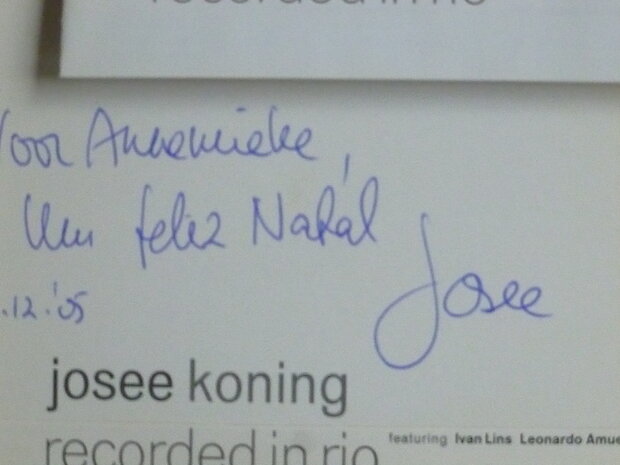 recorded in rio
Voor Annemieke,
Um feliz Natál
.12.'05
Josee
josee koning
recorded in rio
featuring Ivan Lins Leonardo Amue